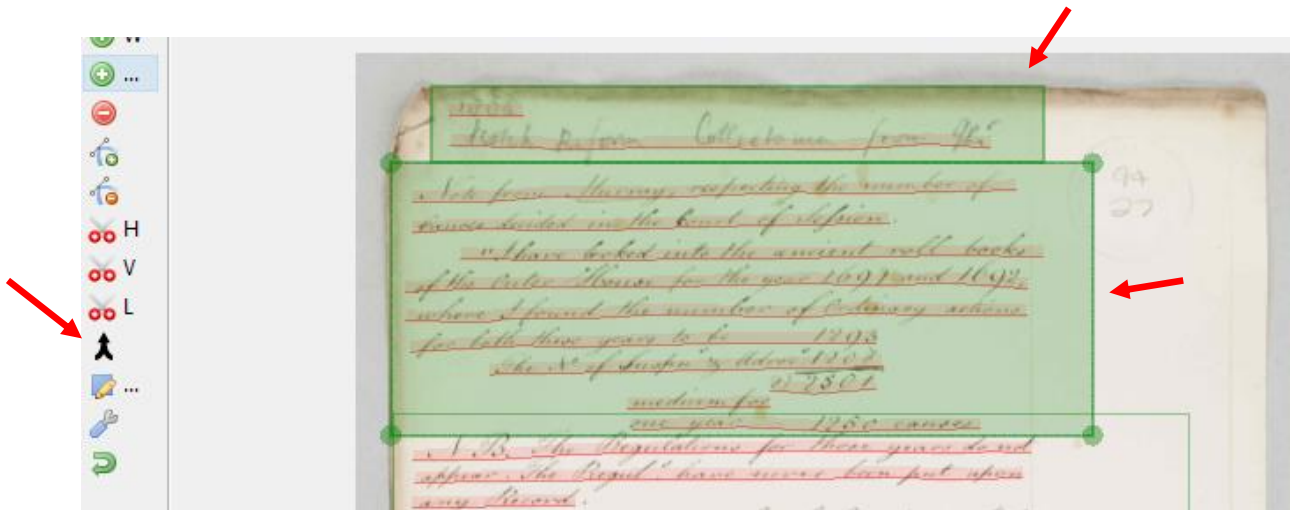 ...
H
V
L
...
94
27
Scotch Reform Collectanea from
Note from Murray, respecting the number of
causes decided in the Court of Session.
"I have looked into the ancient roll books
of the Outer House for the year 1691 and 1692,
where I found the number of Ordinary actions
for both these years to be 1293
The No of Suspns & Advns 1208
2) 2501
medium for
one year 1250 causes.
N B. The Regulations for those years do not
appear. The Reguls have never been put upon
any Record.